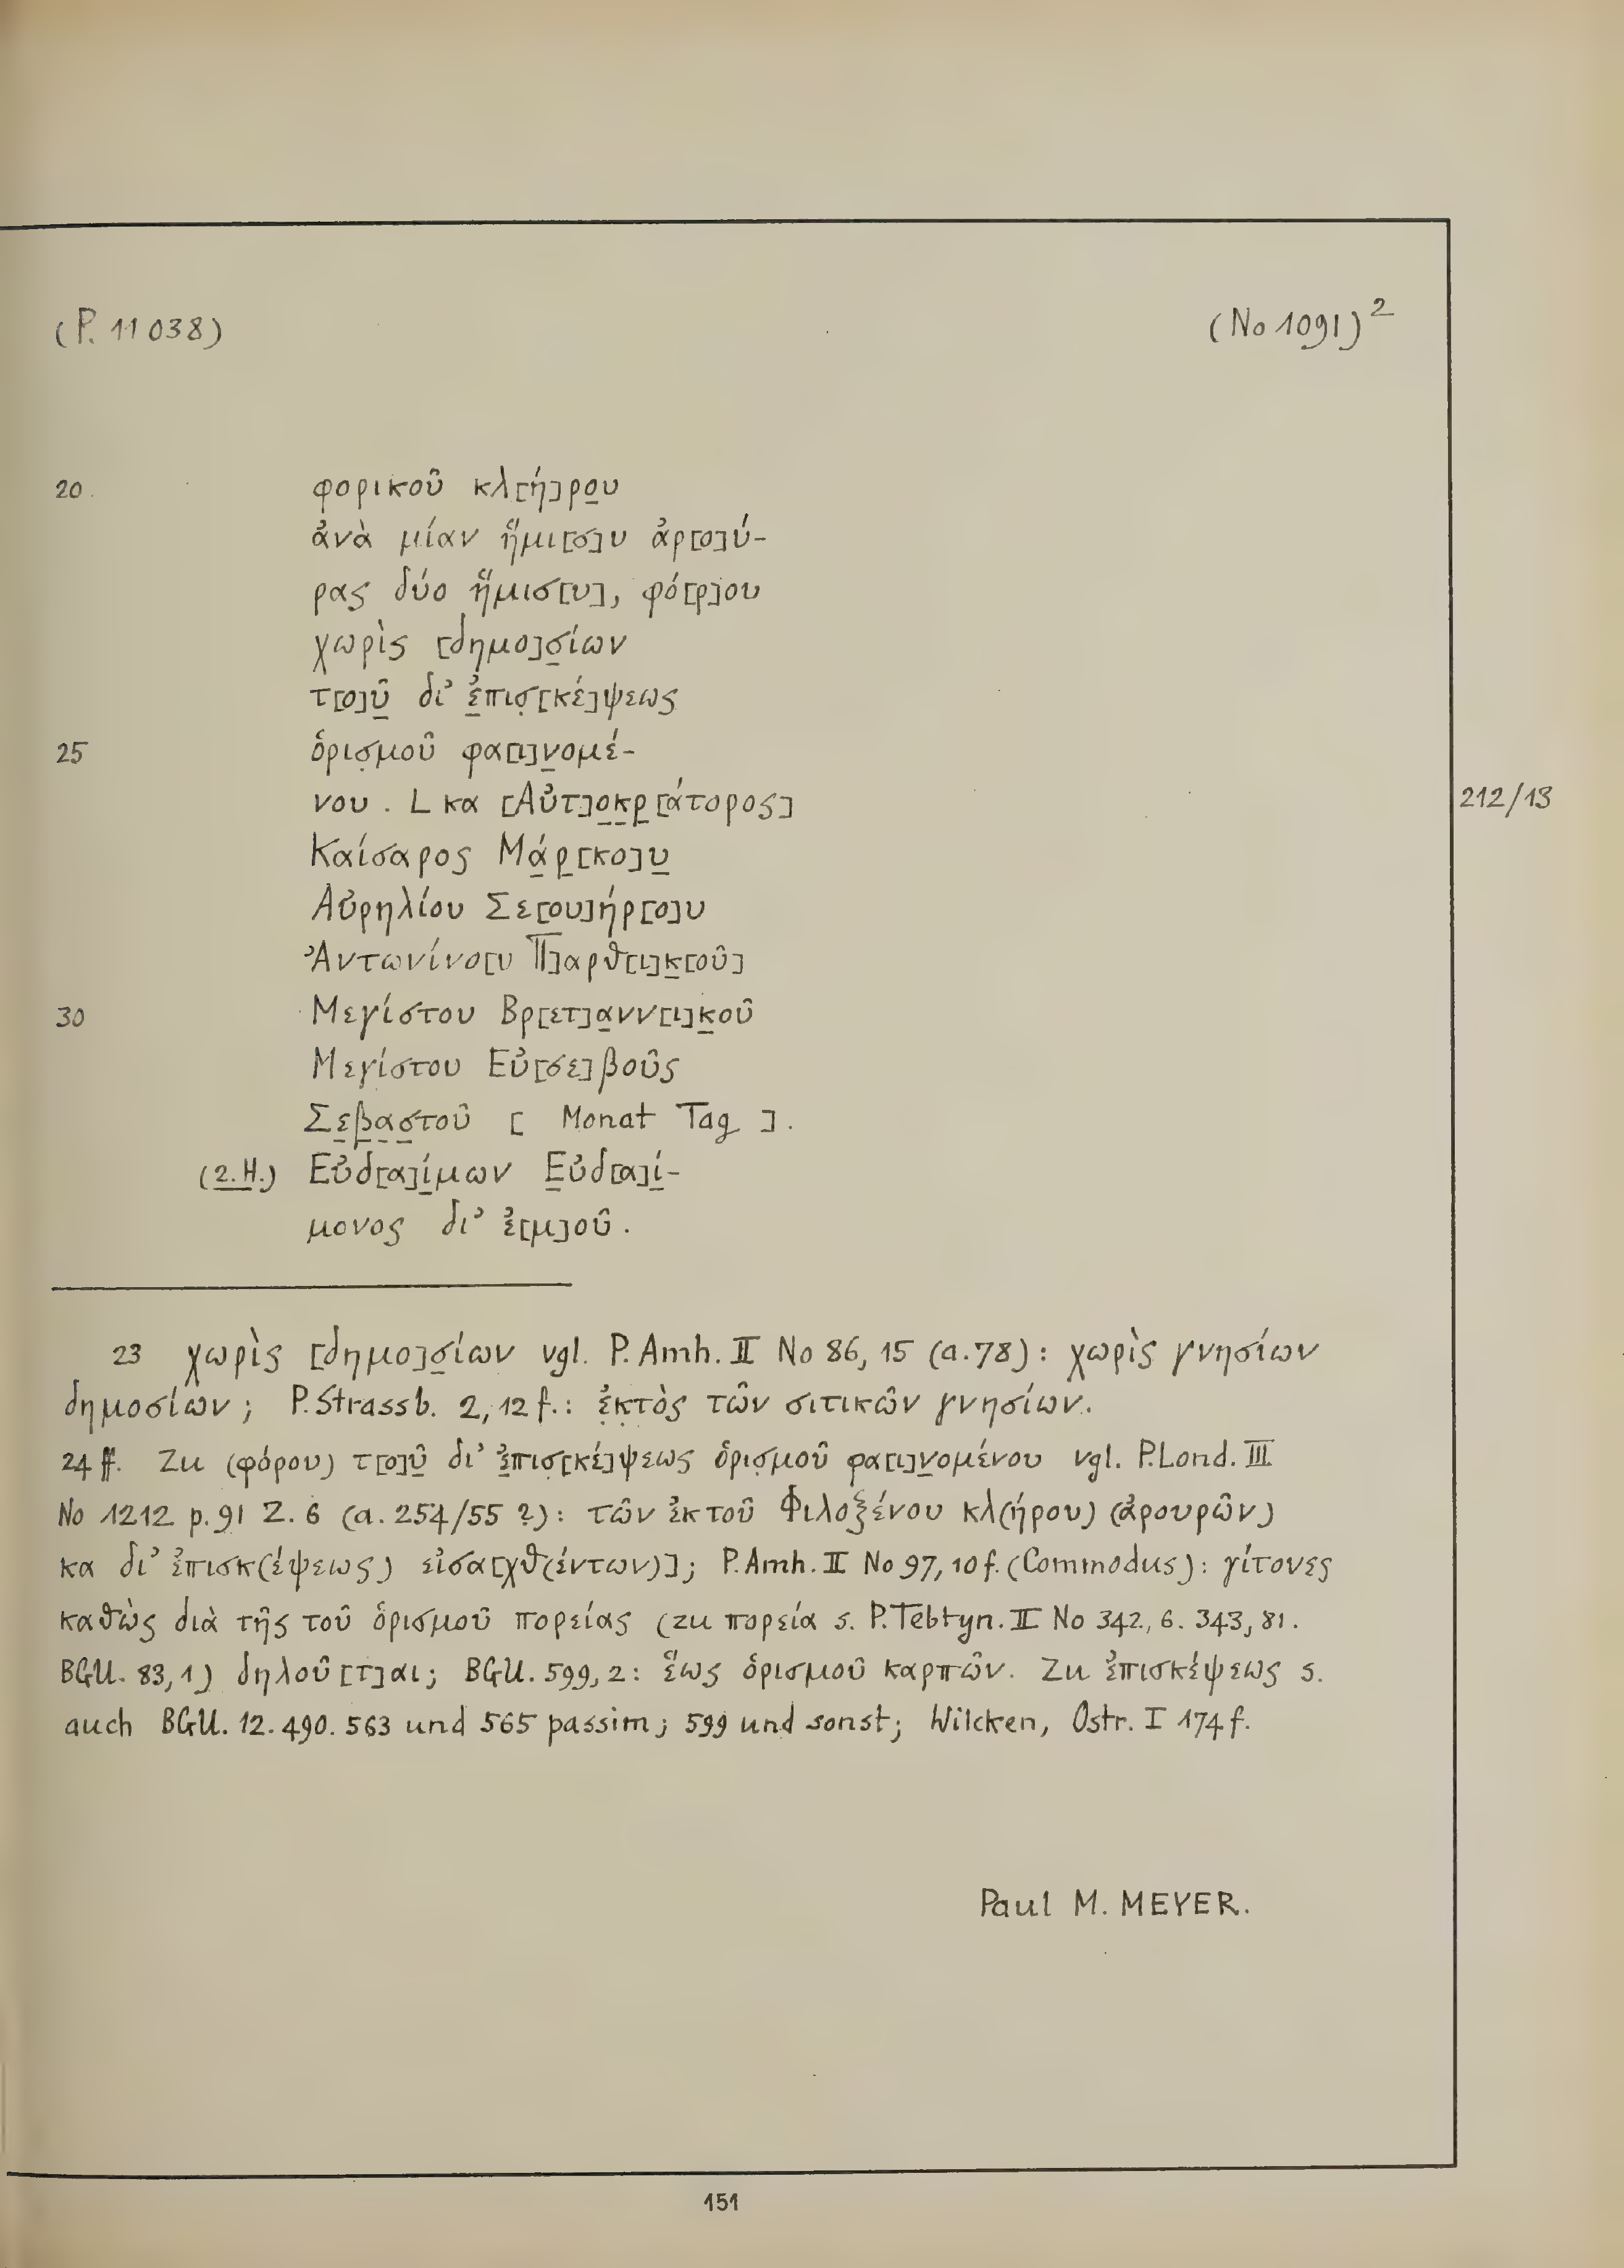 (P. 11038) (No 1091)²
20 φορικοῦ κλ[ή]ρο̲υ
ἀνὰ μίαν ἥμι[σ]υ ἀρ[ο]ύ-
ρας δύο ἥμισ[υ], φό[ρ]ου
χωρὶς [δημο]σ̲ίων
τ[ο]ῦ̲ δι’ ἐ̲πισ̣[κέ]ψεως
25 ὁρισ̣μοῦ φα[ι]ν̲ομέ-
νου . L κα [Αὐτ]ο̲κ̲ρ̲[άτορος] 212/13
Καίσαρος Μά̲ρ̲[κο]υ̲
Αὐρηλίου Σε[ου]ήρ[ο]υ
Ἀντωνίνο[υ Π]αρθ[ι]κ̲[οῦ]
30 Μεγίστου Βρ[ετ]α̲νν[ι]κ̲οῦ
Μεγίστου Εὐ[σε]βοῦς
Σε̲β̲α̲σ̲τοῦ [ Monat Tag ].
(2. H.) Εὐδ[α]ί̲μων Ε̲ὐδ[α]ί̲-
μονος δι’ ἐ[μ]οῦ .
23 χωρὶς [δημο]σ̲ίων vgl. P. Amh. II No 86, 15 (a. 78) : χωρὶς γνησίων
δημοσίων ; P. Strassb. 2, 12 f. : ἐ̣κ̣τ̣ὸς τῶν σιτικῶν γνησίων.
24 ff. Zu (φόρου) τ[ο]ῦ̲ δι’ ἐ̲πισ̣[κέ]ψεως ὁρισ̣μοῦ φα[ι]ν̲ομένου vgl. P. Lond. III
No 1212 p. 91 Z. 6 (a. 254/55 ?) : τῶν ἐκτοῦ Φιλοξένου κλ(ήρου) (ἀρουρῶν)
κα δι’ ἐπισκ(έψεως) εἰσα[χθ(έντων)] ; P. Amh. II No 97, 10 f. (Commodus) : γίτονες
καθὼς διὰ τῆς τοῦ ὁρισμοῦ πορείας (zu πορεία s. P. Tebtyn. II No 342, 6. 343, 81.
BGU. 83, 1) δηλοῦ[τ]αι ; BGU. 599, 2 : ἕως ὁρισμοῦ καρπῶν. Zu ἐπισκέψεως s.
auch BGU. 12. 490. 563 und 565 passim ; 599 und sonst ; Wilcken, Ostr. I 174 f.
Paul M. MEYER.
151